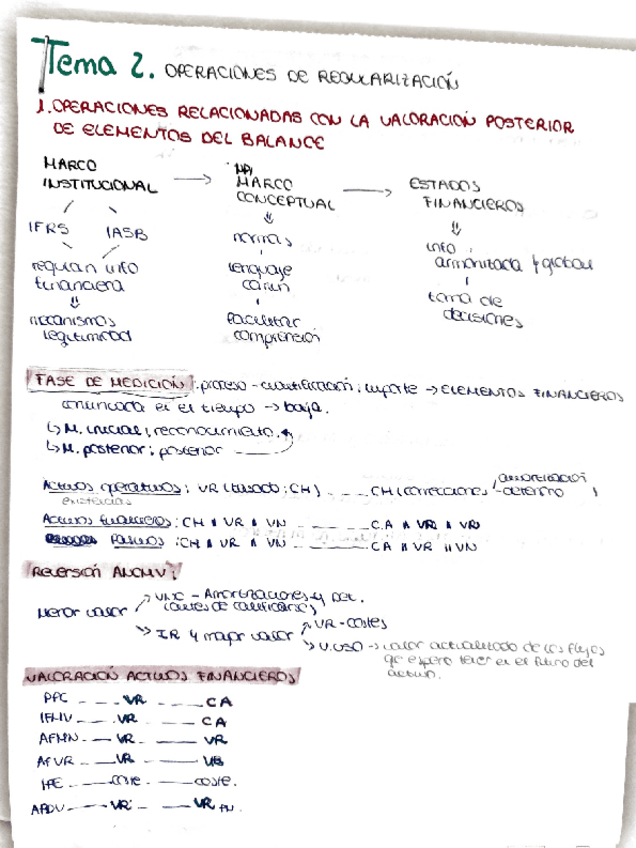 Tema 2. OPERACIONES DE REGULARIZACIÓN
1. OPERACIONES RELACIONADAS CON LA VALORACIÓN POSTERIOR
DE ELEMENTOS DEL BALANCE
MARCO INSTITUCIONAL → MARCO CONCEPTUAL → ESTADOS FINANCIEROS
IFRS IASB
regulan info financiera
⇓
mecanismos legitimidad
⇓
normas
lenguaje común
facilitar comprensión
⇓
info armonizada y global
toma de decisiones
FASE DE MEDICIÓN: proceso - cuantificación: importe → ELEMENTOS FINANCIEROS
continuada en el tiempo → baja.
↳ M. inicial; reconocimiento.
↳ M. posterior; posterior
Activos operativos: VR (usado: CH) ---- CH (correcciones amortización deterioro)
existencias
Activos financieros: CH VR VN ---- CA VR VR
Pasivos: CH VR VN ---- CA VR VN
Reversión ANCMV:
Menor valor
VNC - Amortizaciones y Det. (antes de calificarse)
IR y mayor valor
VR - costes
V.USO → valor actualizado de los flujos
que espero tener en el futuro del
activo.
VALORACIÓN ACTIVOS FINANCIEROS
PPC ---- VR ---- CA
---- VR ---- CA
AFMN ---- VR ---- VR
AFVR ---- VR ---- VR
---- coste ---- coste.
AFDV ---- VR ---- VR PN.